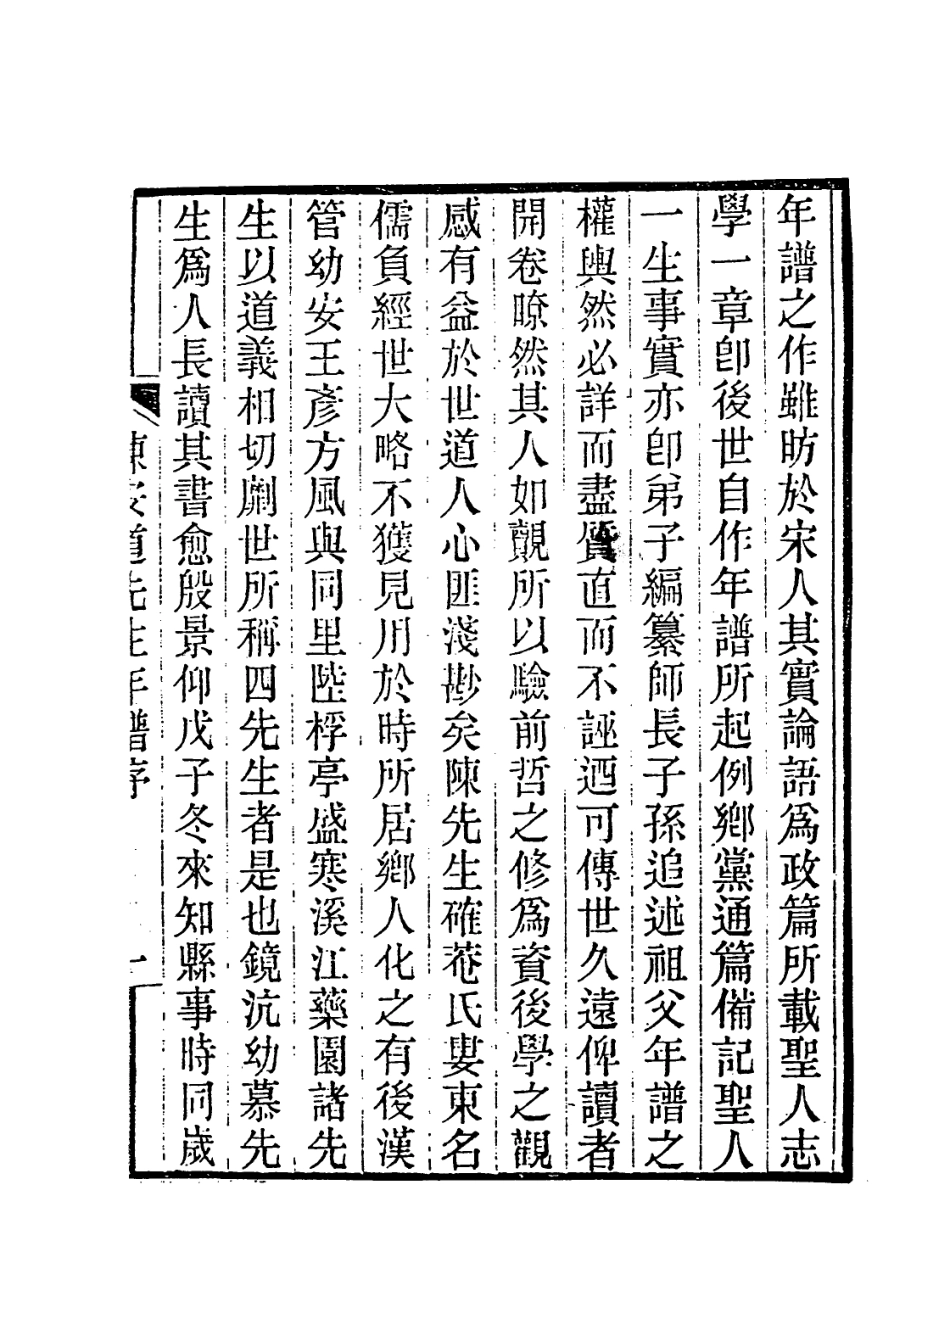 年譜之作雖昉於宋人其實論語爲政篇所載聖人志
學一章卽後世自作年譜所起例鄉黨通篇備記聖人
一生事實亦卽弟子編纂師長子孫追述祖父年譜之
權輿然必詳而盡質直而不誣迺可傳世久遠俾讀者
開卷暸然其人如覿所以驗前哲之修爲資後學之觀
感有益於世道人心匪淺尠矣陳先生確菴氏婁東名
儒負經世大略不獲見用於時所居鄉人化之有後漢
管幼安王彥方風與同里陸桴亭盛寒溪江藥園諸先
生以道義相切劘世所稱四先生者是也鏡沆幼慕先
生爲人長讀其書愈殷景仰戊子冬來知縣事時同歲
陳安道先生年譜序 一